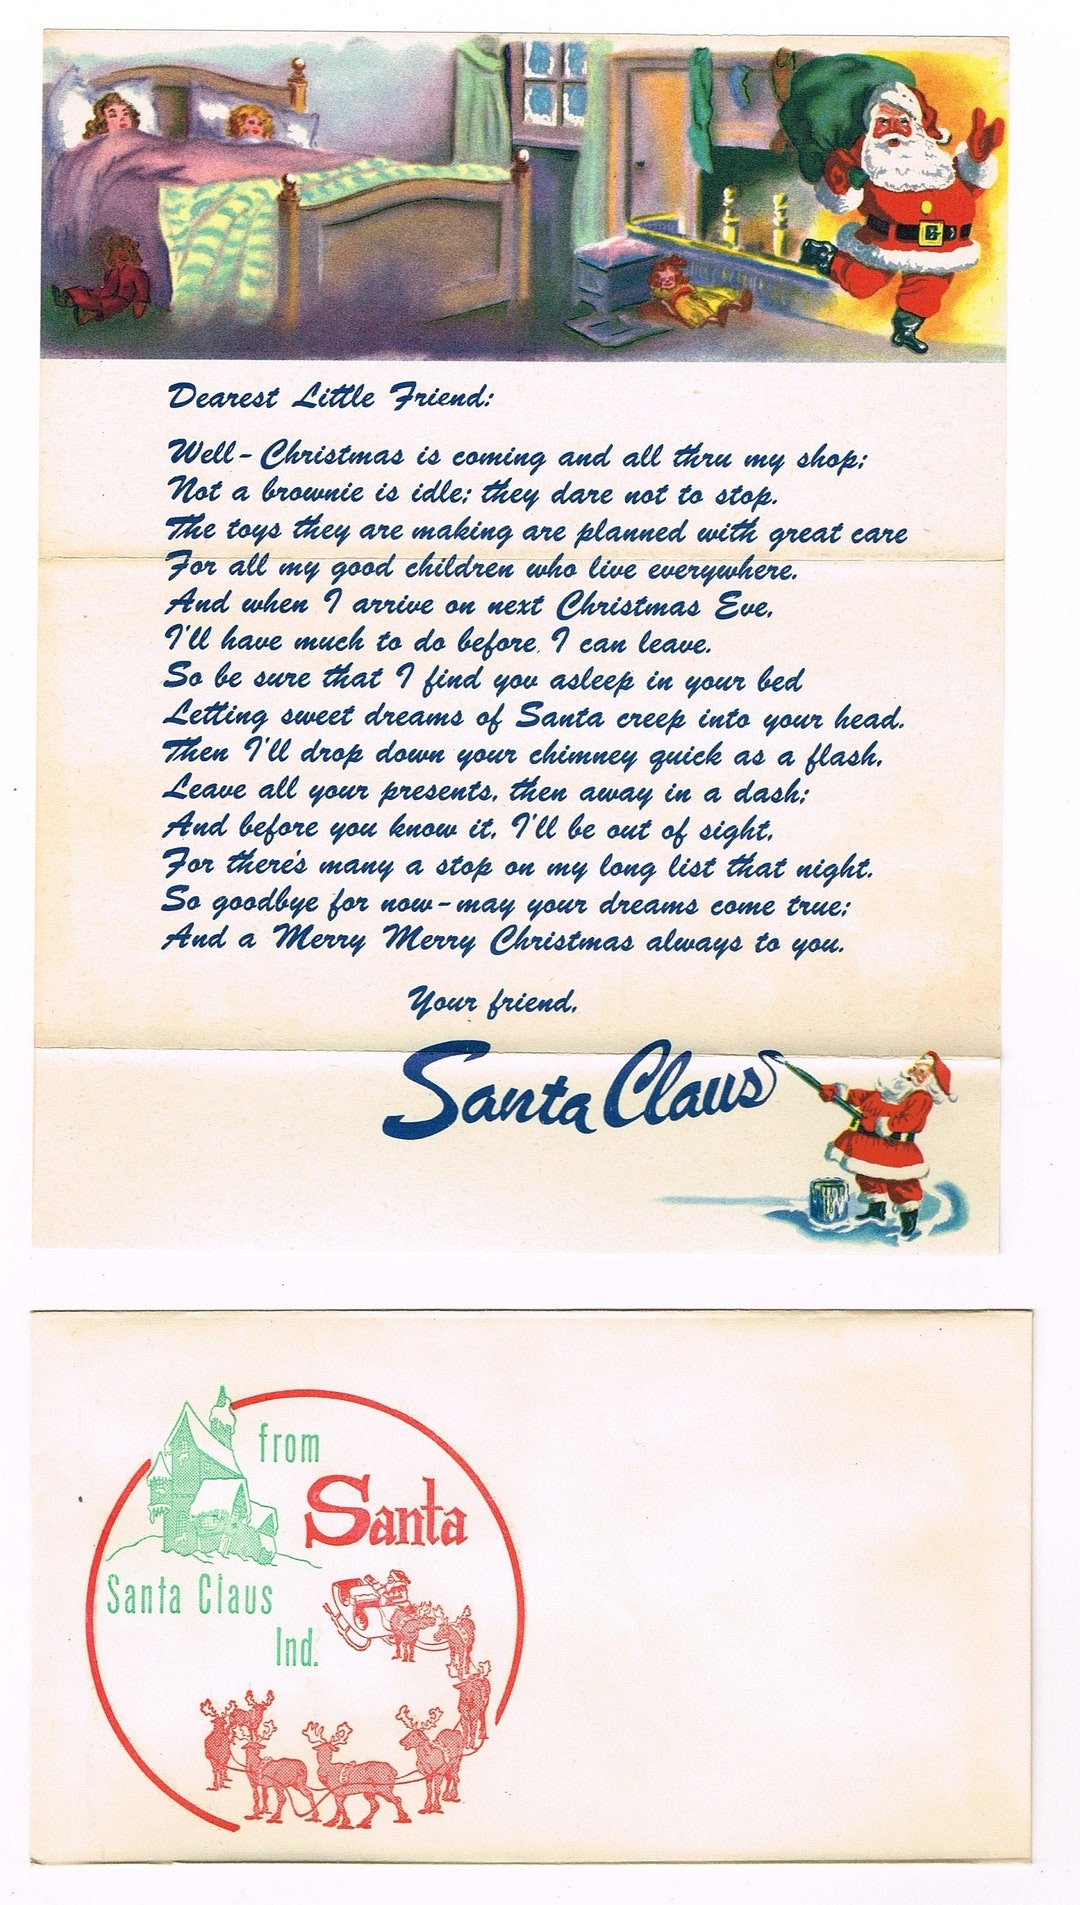 Dearest Little Friend:
Well - Christmas is coming and all thru my shop;
Not a brownie is idle; they dare not to stop.
The toys they are making are planned with great care
For all my good children who live everywhere.
And when I arrive on next Christmas Eve,
I'll have much to do before I can leave.
So be sure that I find you asleep in your bed
Letting sweet dreams of Santa creep into your head.
Then I'll drop down your chimney quick as a flash,
Leave all your presents, then away in a dash;
And before you know it, I'll be out of sight,
For there's many a stop on my long list that night.
So goodbye for now - may your dreams come true;
And a Merry Merry Christmas always to you.
Your friend,
Santa Claus
from
Santa
Santa Claus
Ind.